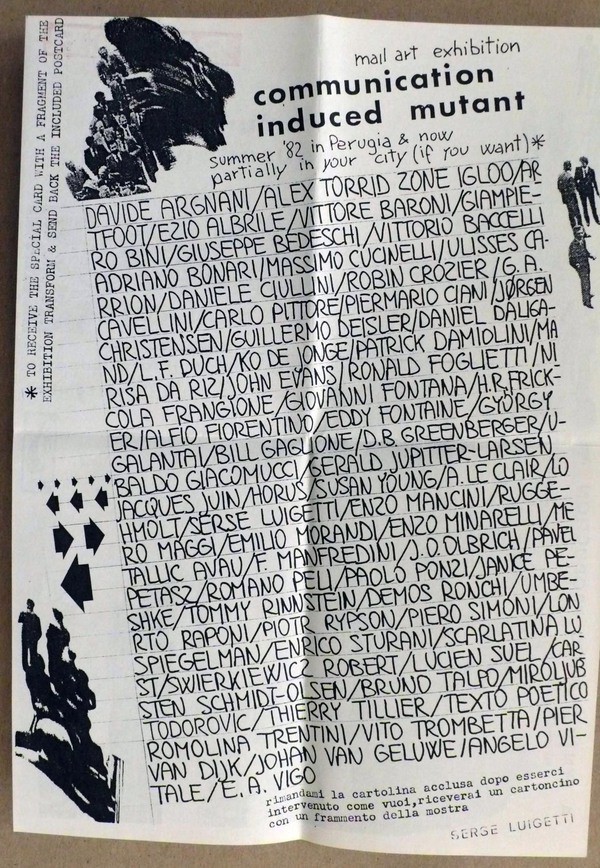 * TO RECEIVE THE SPECIAL CARD WITH A FRAGMENT OF THE
EXHIBITION TRANSFORM & SEND BACK THE INCLUDED POSTCARD
mail art exhibition
communication
induced mutant
summer '82 in Perugia & now
partially in your city (if you want)*
DAVIDE ARGNANI/ALEX TORRID ZONE IGLOO/AR
TFOOT/EZIO ALBRILE/VITTORE BARONI/GIAMPIE-
RO BINI/GIUSEPPE BEDESCHI/VITTORIO BACCELLI
ADRIANO BONARI/MASSIMO CUCINELLI/ULISSES CA-
RRION/DANIELE CIULLINI/ROBIN CROZIER/G. A.
CAVELLINI/CARLO PITTORE/PIERMARIO CIANI/JØRGEN
CHRISTENSEN/GUILLERMO DEISLER/DANIEL DALIGA-
ND/L.F. DUCH/KO DE JONGE/PATRICK DAMIOLINI/MA
RISA DA RIZ/JOHN EVANS/RONALD FOGLIETTI/NI
COLA FRANGIONE/GIOVANNI FONTANA/H.R.FRICK-
ER/ALFIO FIORENTINO/EDDY FONTAINE/GYÖRGY
GALANTAI/BILL GAGLIONE/D.B.GREENBERGER/U-
BALDO GIACOMUCCI/GERALD JUPITTER-LARSEN
JACQUES JUIN/HORUS/SUSAN YOUNG/A.LE CLAIR/LO
HMOLT/SERSE LUIGETTI/ENZO MANCINI/RUGGE-
RO MAGGI/EMILIO MORANDI/ENZO MINARELLI/ME
TALLIC AVAU/F. MANFREDINI/J.O.OLBRICH/PAVEL
PETASZ/ROMANO PELI/PAOLO PONZI/JANICE PE-
SHKE/TOMMY RINNSTEIN/DEMOS RONCHI/UMBE-
RTO RAPONI/PIOTR RYPSON/PIERO SIMONI/LON
SPIEGELMAN/ENRICO STURANI/SCARLATINA LU
ST/SWIERKIEWICZ ROBERT/LUCIEN SUEL/CAR-
STEN SCHMIDT-OLSEN/BRUNO TALPO/MIROLJUB
TODOROVIC/THIERRY TILLIER/TEXTO POETICO
ROMOLINA TRENTINI/VITO TROMBETTA/PIER
VAN DIJK/JOHAN VAN GELUWE/ANGELO VI-
TALE/E.A. VIGO
rimandami la cartolina acclusa dopo esserci
intervenuto come vuoi,riceverai un cartoncino
con un frammento della mostra
SERGE LUIGETTI